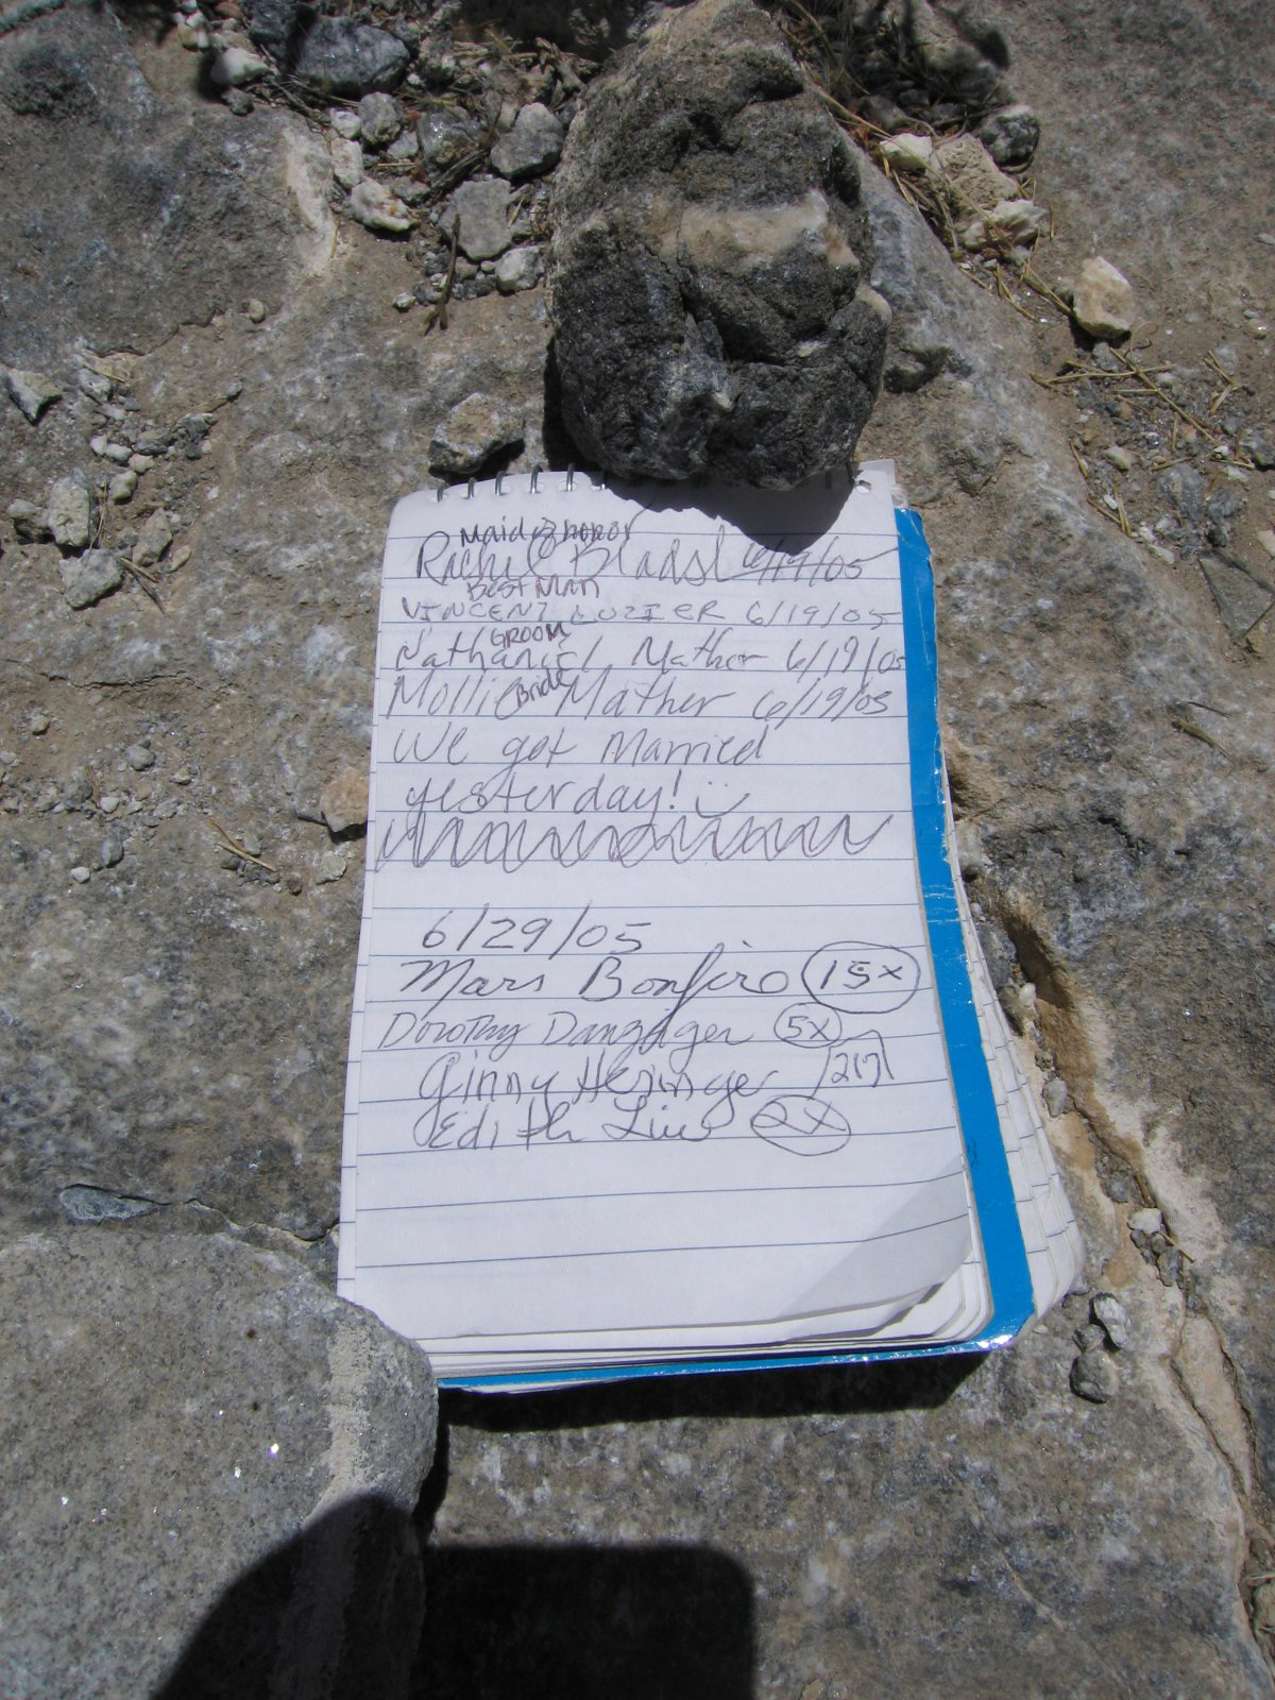 Maid of honor
Rachel 6/19/05
Best Man
VINCENT LUZIER 6/19/05
GROOM
Nathaniel Mather 6/19/05
Bride
Mollie Mather 6/19/05
We got Married
yesterday!
6/29/05
Mars Bonfire 15x
Dorothy Danziger 5x
Ginny Heringer
Edith Liu 2x